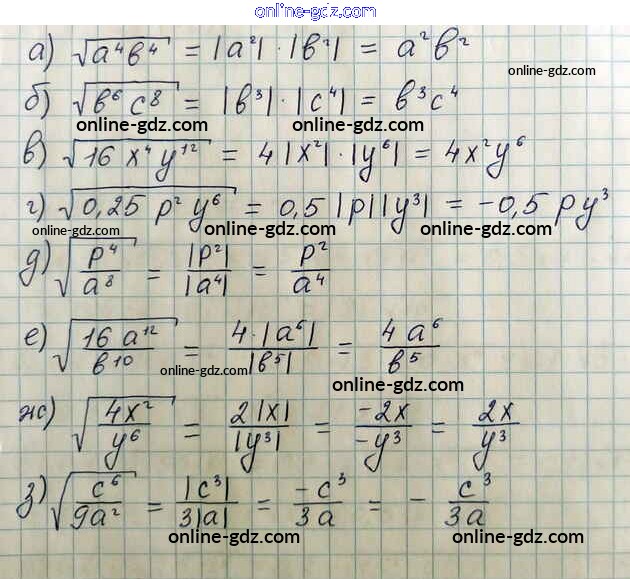 online-gdz.com
а) √a⁴b⁴ = |a²|·|b²| = a²b²
online-gdz.com
б) √b⁶c⁸ = |b³|·|c⁴| = b³c⁴
online-gdz.com online-gdz.com
в) √16x⁴y¹² = 4|x²|·|y⁶| = 4x²y⁶
г) √0,25p²y⁶ = 0,5|p||y³| = -0,5py³
online-gdz.com online-gdz.com online-gdz.com
д) √p⁴/a⁸ = |p²|/|a⁴| = p²/a⁴
е) √16a¹²/b¹⁰ = 4·|a⁶|/|b⁵| = 4a⁶/b⁵
online-gdz.com online-gdz.com
ж) √4x²/y⁶ = 2|x|/|y³| = -2x/-y³ = 2x/y³
з) √c⁶/9a² = |c³|/3|a| = -c³/3a = - c³/3a
online-gdz.com online-gdz.com